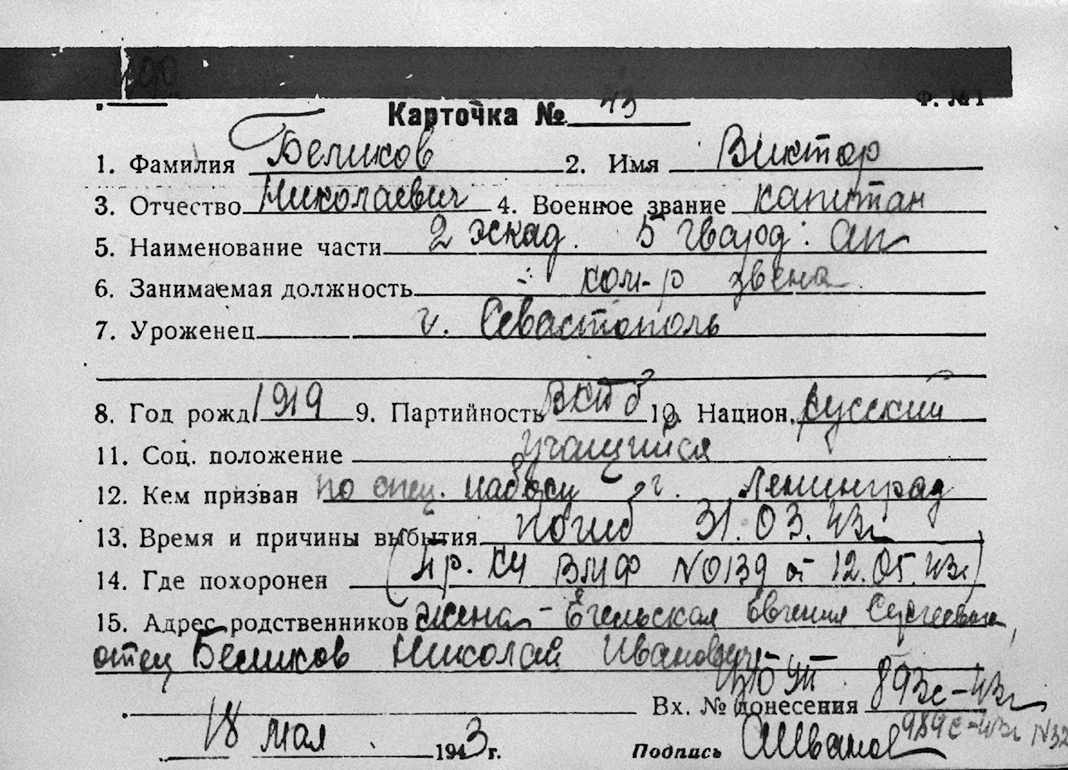 Ф. №1
Карточка № 43
1. Фамилия Беликов 2. Имя Виктор
3. Отчество Николаевич 4. Военное звание капитан
5. Наименование части 2 эскад. 5 гвард. ап
6. Занимаемая должность ком-р звена
7. Уроженец г. Севастополь
8. Год рожд. 1919 9. Партийность ВКПб 10. Национ. русский
11. Соц. положение учащийся
12. Кем призван по спец. набору г. Ленинград
13. Время и причины выбытия погиб 31.03.43г
14. Где похоронен (пр. КЧ ВМФ №0139 от 12.05.43г)
15. Адрес родственников жена - Евгения Сергеевна,
отец Беликов Николай Иванович
Вх. № донесения 893с-43г
18 мая 1943г. Подпись 989с-43г